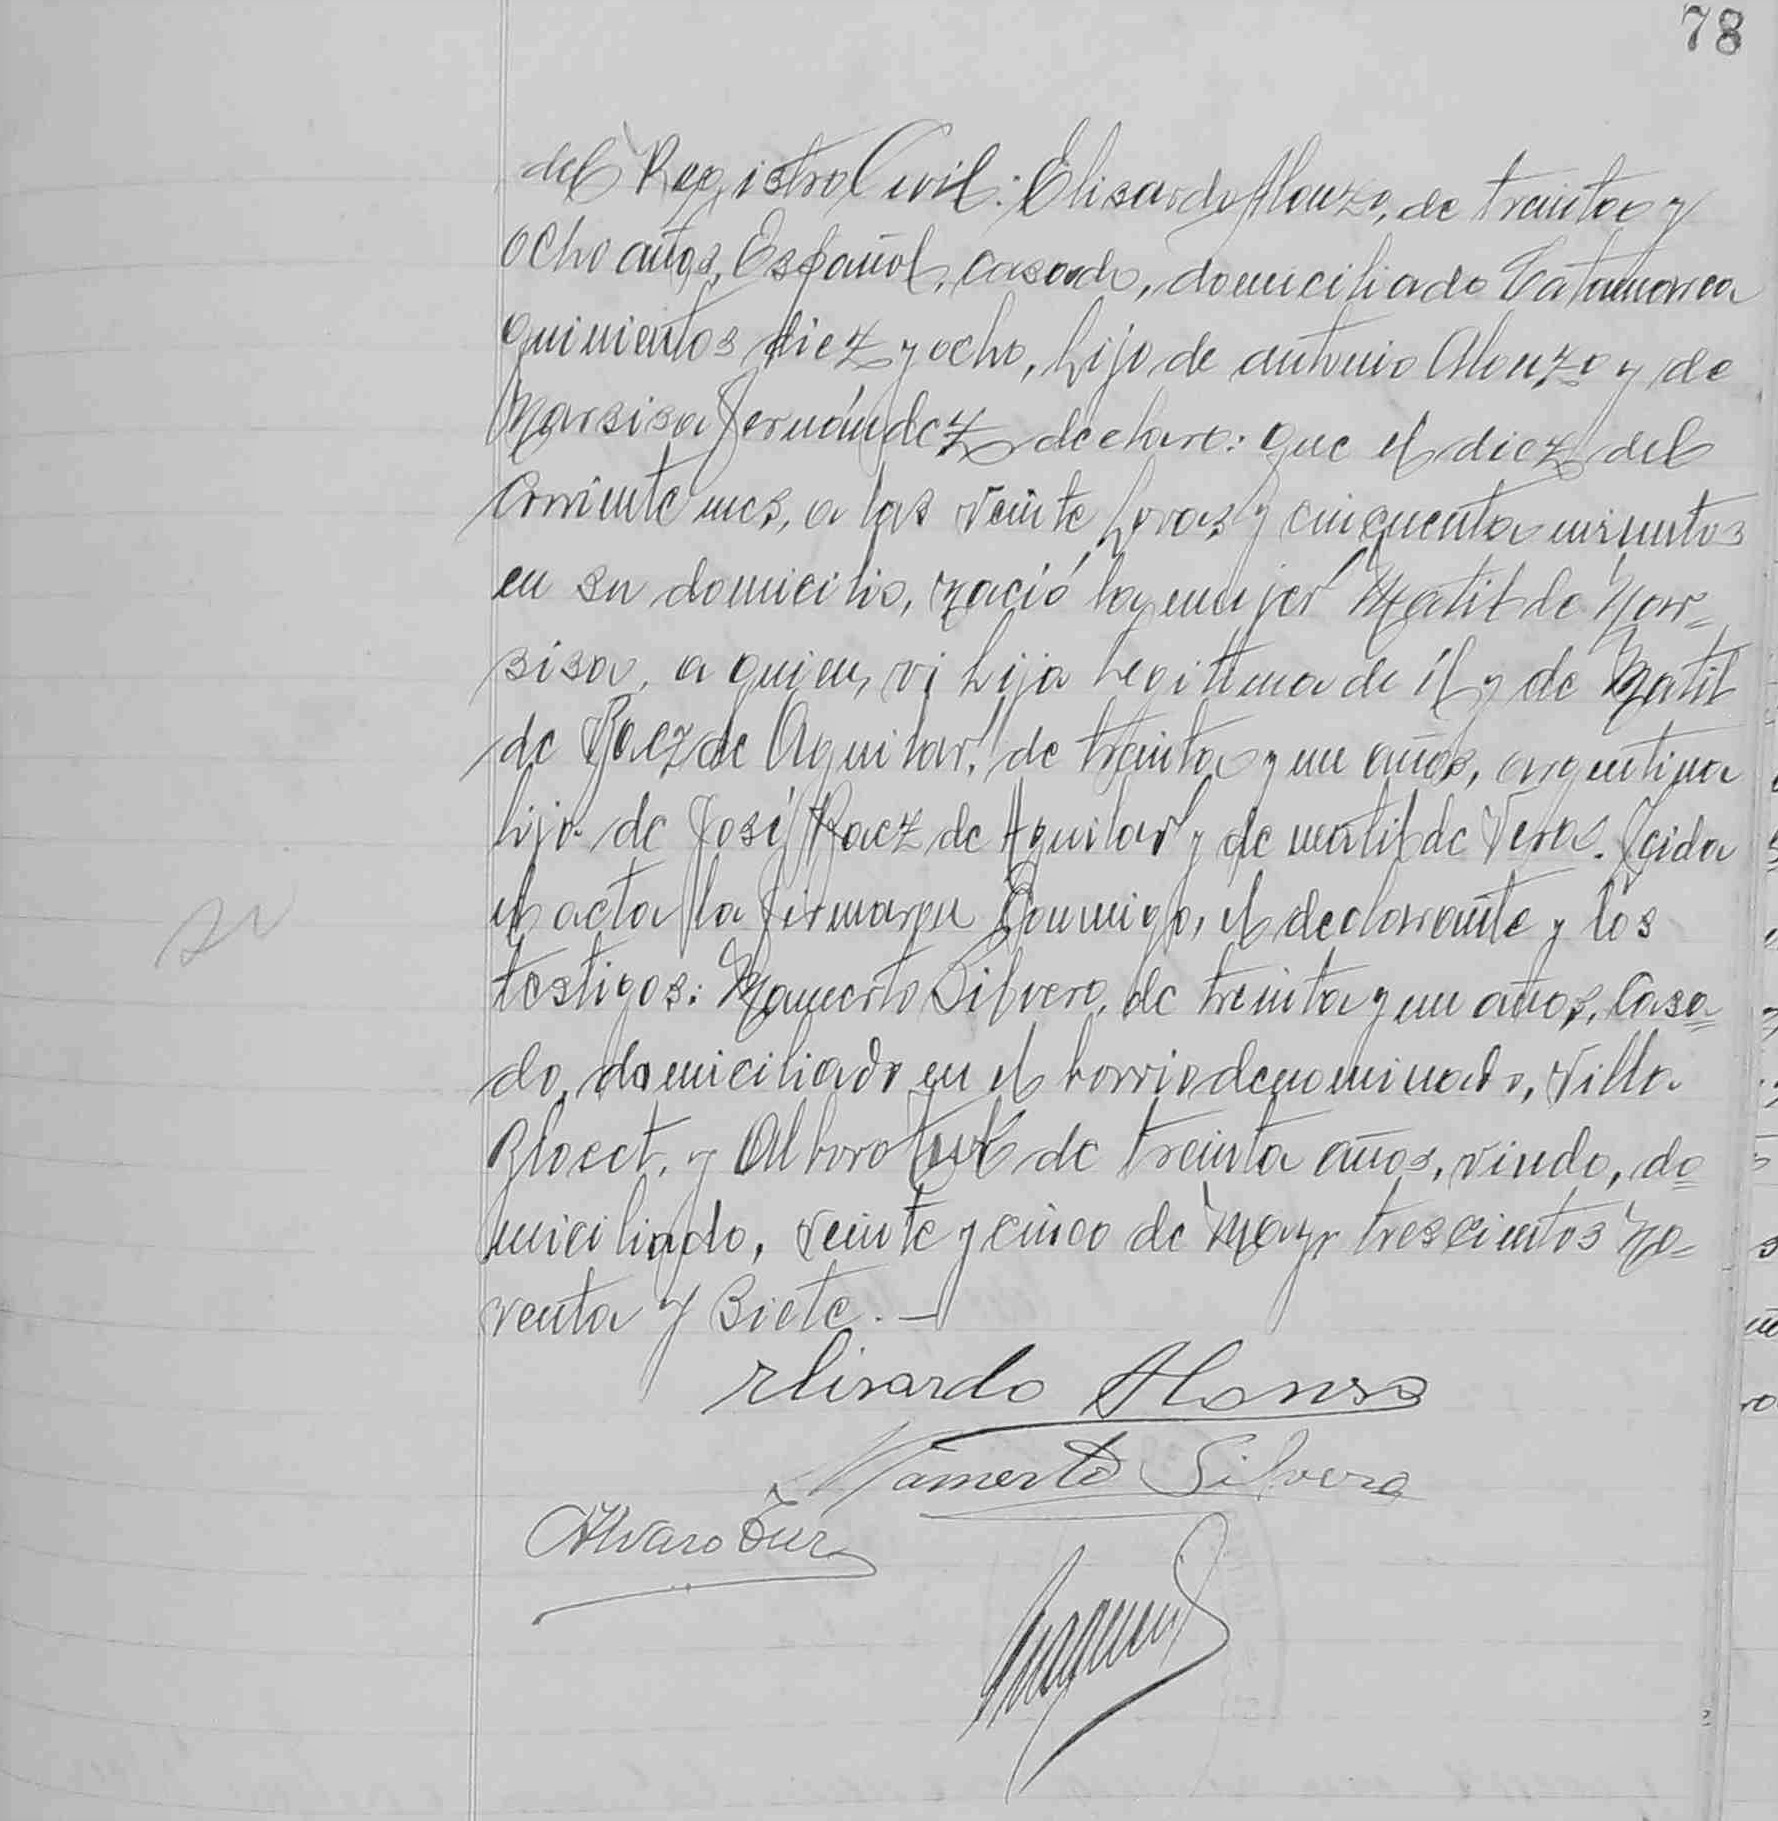 78
del Registro Civil: Elisardo Alonzo, de treinta y
ocho años, Español, casado, domiciliado Catamarca
quinientos diez y ocho, hijo de Antonio Alonzo y de
Narsisa Fernández declaro: que el diez del
corriente mes, a las veinte horas y cincuenta minutos
en su domicilio, nació la mujer Matilde Nar=
sisa, a quien, vi hija legitima de él y de Matil
de Baez de Aguilar, de treinta y un años, argentina
hija de José Baez de Aguilar y de Matilde Vera. Leida
el acta la firmaron conmigo, el declarante y los
testigos: Mamerto Silvero, de treinta y un años, casa=
do, domiciliado en el barrio denominado, Villa
y de treinta años, viudo, do=
miciliado, veinte y cinco de Mayo trescientos no=
venta y siete. —
Elisardo Alonso
Mamerto Silvero
Alvaro Tur